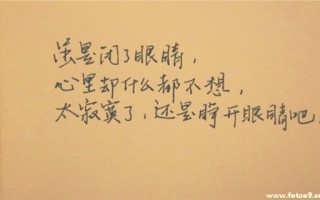 虽是闭了眼睛，
心里却什么都不想，
太寂寞了，还是睁开眼睛吧，